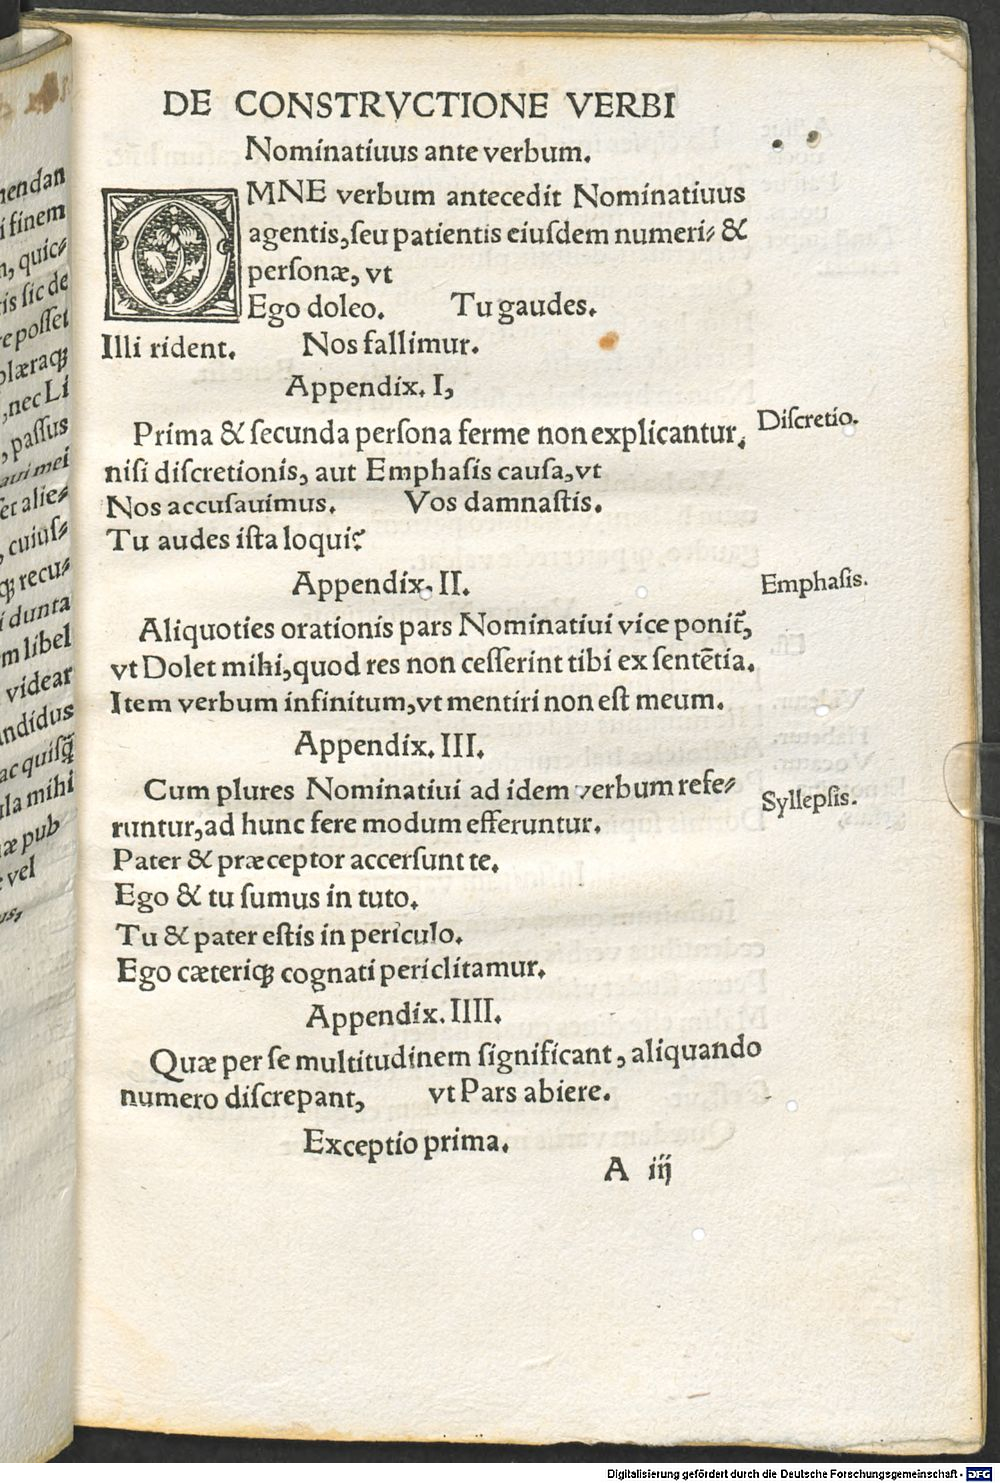 mendan
i finem
n, quic⸗
ris sic de
re posset
plæraqꝫ
, nec Li
, passus
aui mei
set alie⸗
, cuius⸗
qꝫ recu⸗
i dunta
m libel
videar
andidus
ac quisq̃
ula mihi
uæ pub
e vel
us,
DE CONSTRVCTIONE VERBI
Nominatiuus ante verbum.
OMNE verbum antecedit Nominatiuus
agentis, ſeu patientis eiuſdem numeri⸗ &
perſonæ, vt
Ego doleo. Tu gaudes.
Illi rident. Nos fallimur.
Appendix. I,
Prima & ſecunda perſona ferme non explicantur, Diſcretio.
niſi diſcretionis, aut Emphaſis cauſa, vt
Nos accuſauimus. Vos damnaſtis.
Tu audes iſta loqui?
Appendix. II. Emphaſis.
Aliquoties orationis pars Nominatiui vice ponit̃,
vt Dolet mihi, quod res non ceſſerint tibi ex ſentẽtia.
Item verbum infinitum, vt mentiri non eſt meum.
Appendix. III.
Cum plures Nominatiui ad idem verbum refe⸗ Syllepſis.
runtur, ad hunc fere modum efferuntur.
Pater & præceptor accerſunt te.
Ego & tu ſumus in tuto.
Tu & pater eſtis in periculo.
Ego cæteriqꝫ cognati periclitamur.
Appendix. IIII.
Quæ per ſe multitudinem ſignificant, aliquando
numero diſcrepant, vt Pars abiere.
Exceptio prima.
A iij
Digitalisierung gefördert durch die Deutsche Forschungsgemeinschaft - DFG